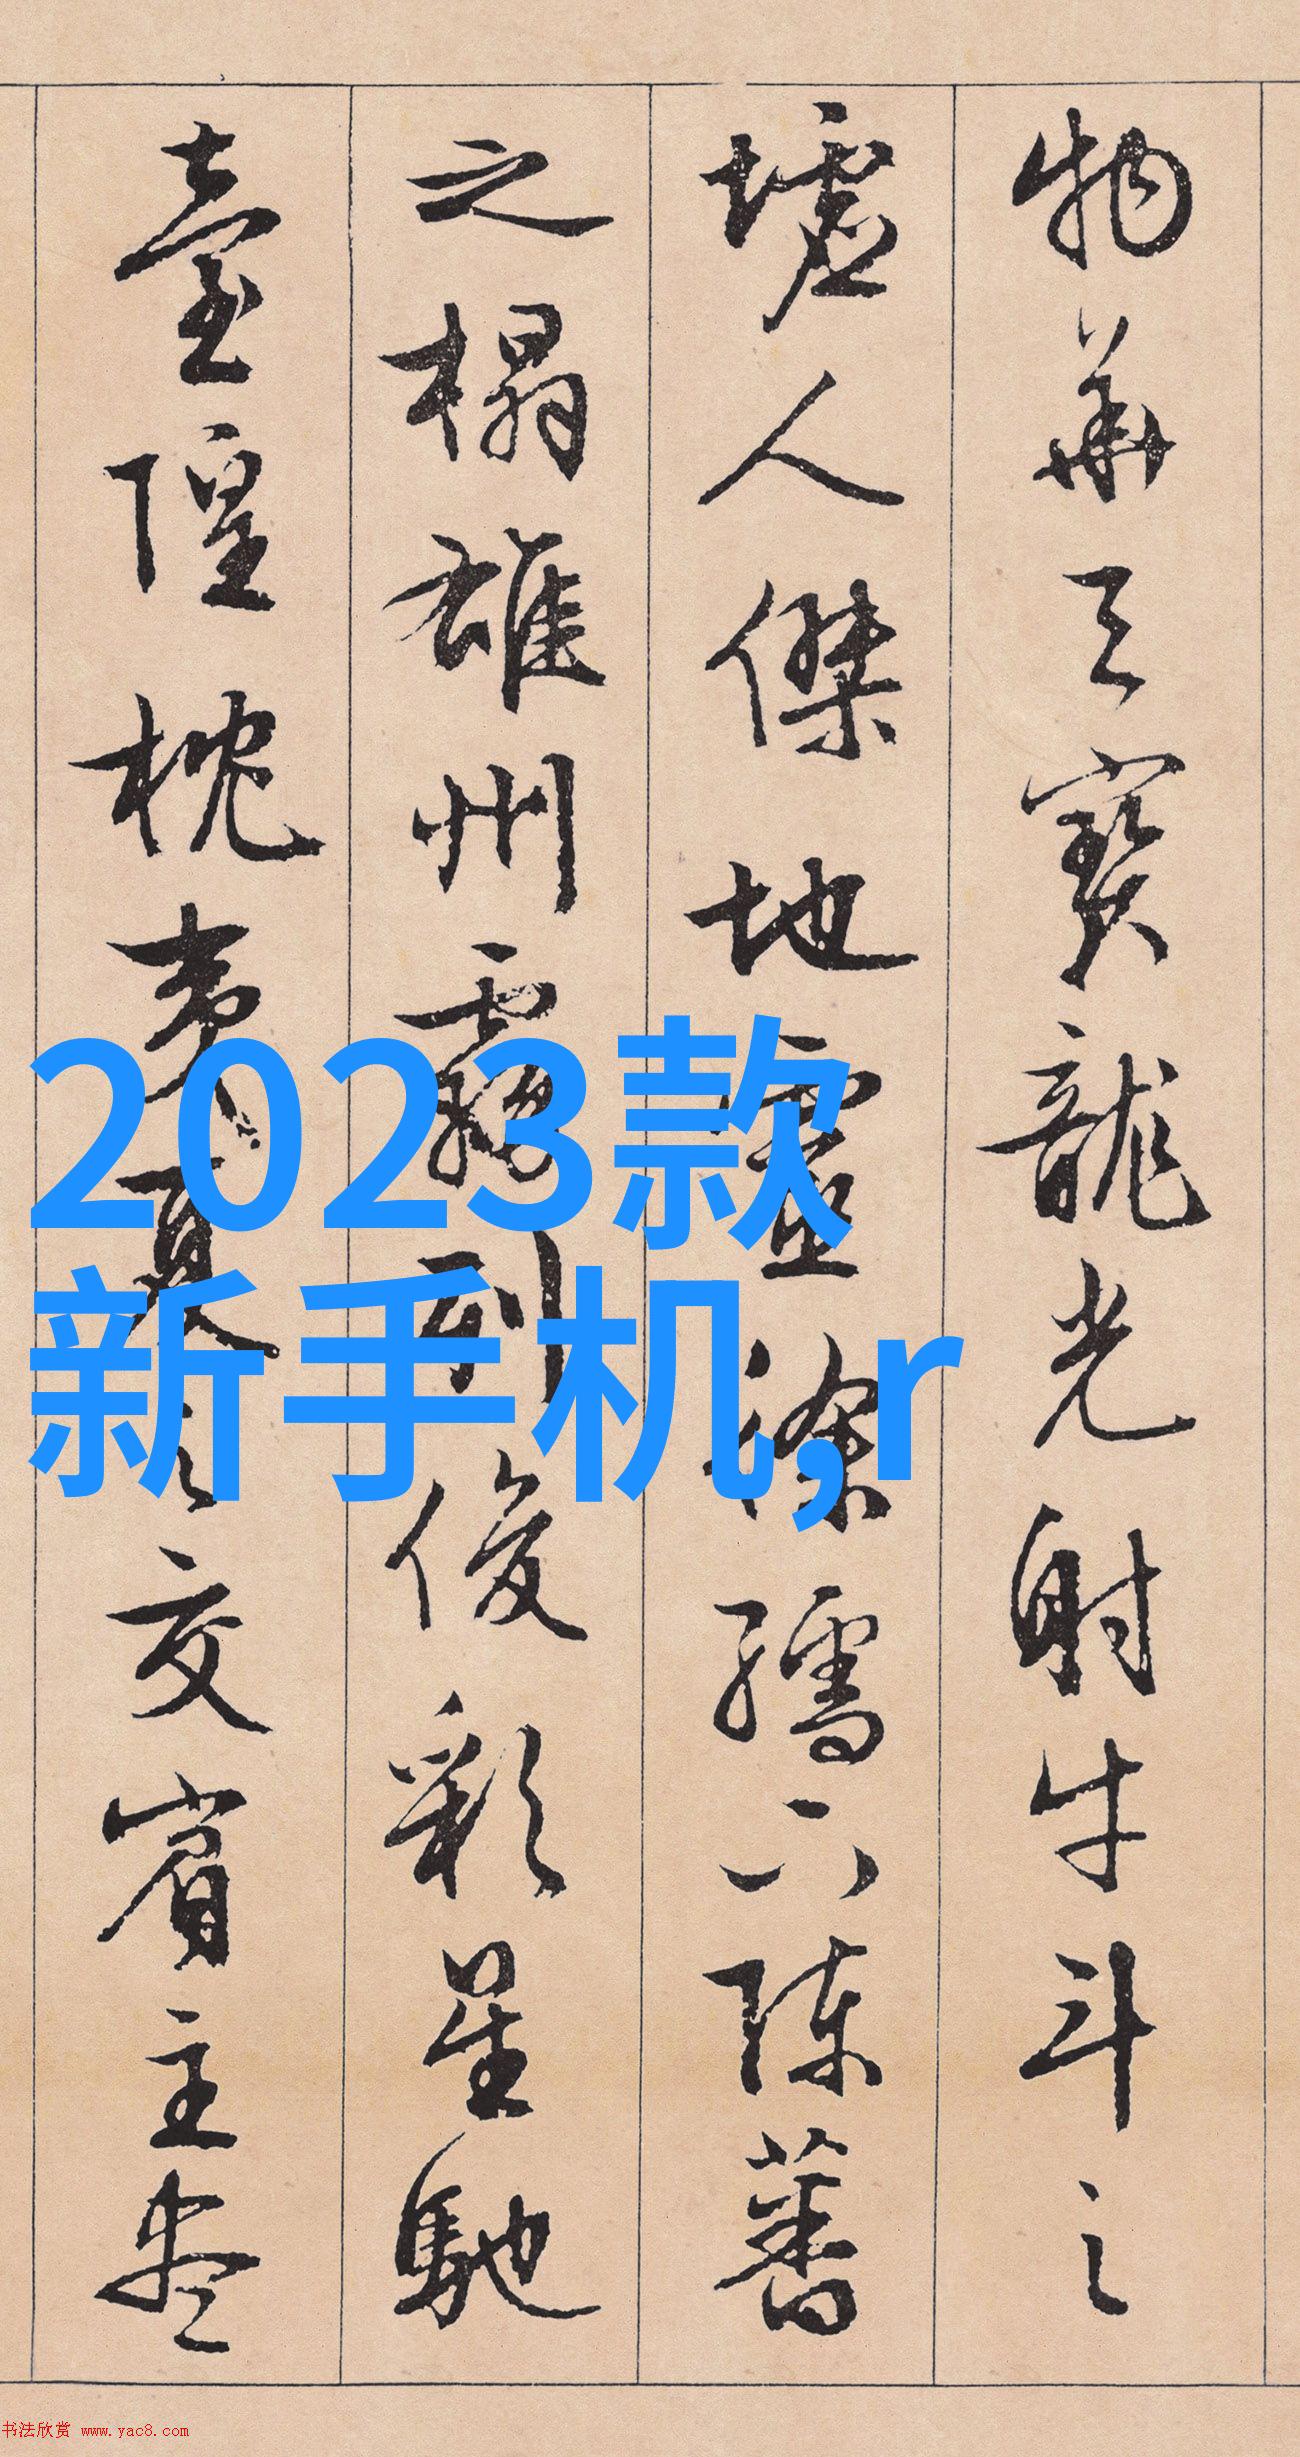 物华天寳龍光射牛斗之
墟人傑地靈徐孺下陳蕃
之榻雄州霧列俊彩星馳
臺隍枕夷夏之交賓主盡
2023款
新手机,r
书法欣赏 www.yac8.com